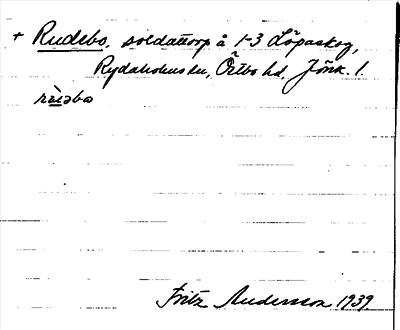 + Rudebo, soldattorp å 1-3 Löpaskog,
Rydaholms sn, Östbo hd, Jönk. l.
Fritz Andersson 1939